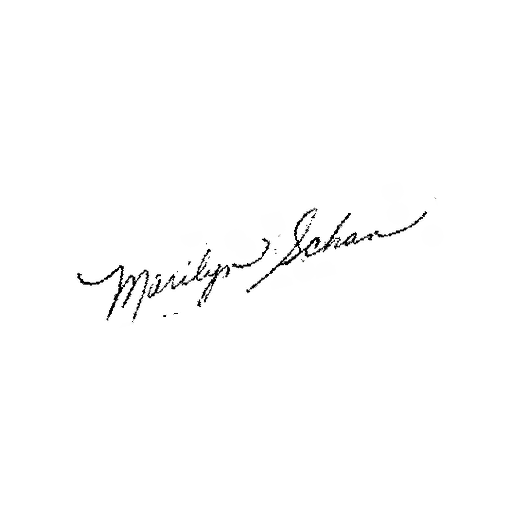 Marilyn Schan